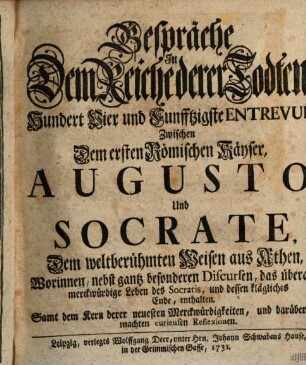 Gespräche
In
Dem Reiche derer Todten
Hundert Vier und Funfftzigste ENTREVUE
Zwischen
Dem ersten Römischen Käyser,
AUGUSTO
Und
SOCRATE,
Dem weltberühmten Weisen aus Athen,
Worinnen, nebst gantz besonderen Discursen, das übera
merckwürdige Leben des Socratis, und dessen klägliches
Ende, enthalten.
Samt dem Kern derer neuesten Merckwürdigkeiten, und darüber
machten curieusen Reflexionen.
Leipzig, verlegts Wolffgang Deer, unter Hrn. Johann Schwabens Hause,
in der Grimmischen Gasse, 1731.